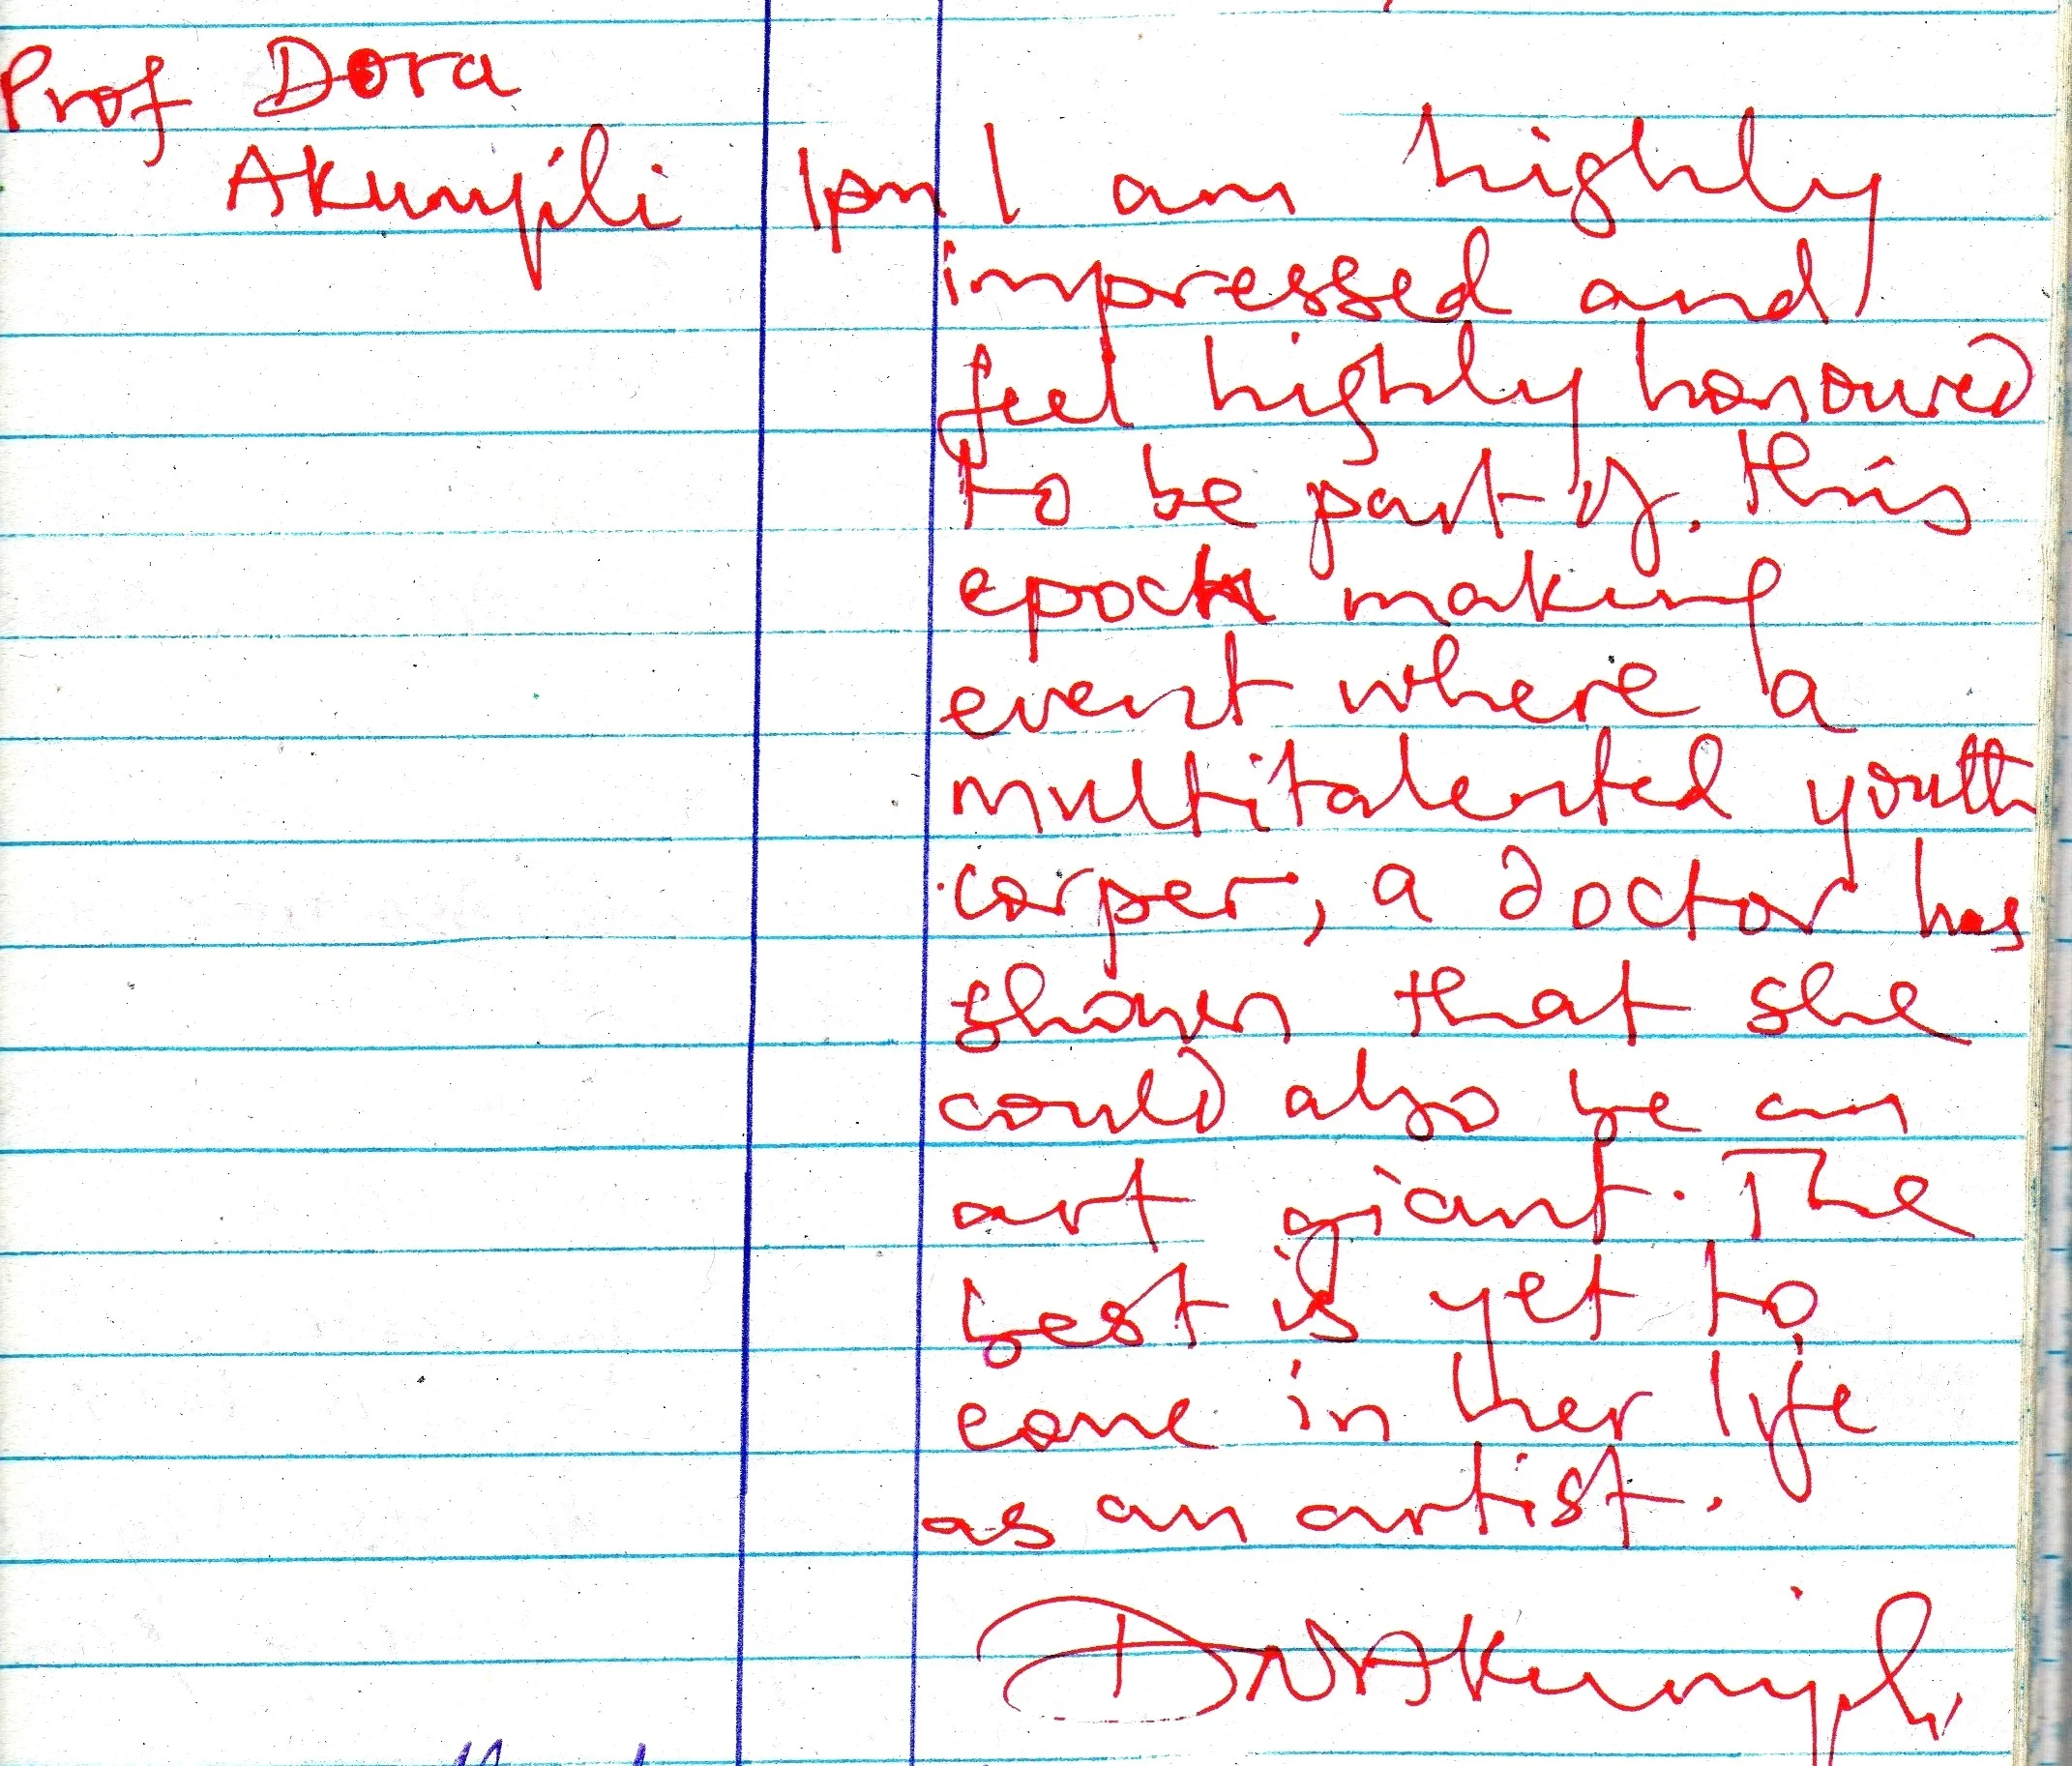 Prof Dora
Akunyili 1pm I am highly
impressed and
feel highly honoured
to be part of. this
epoch making
event where a
multitalented youth
corper, a doctor has
shown that she
could also be an
art giant. The
best is yet to
come in her life
as an artist.
DNAkunyili